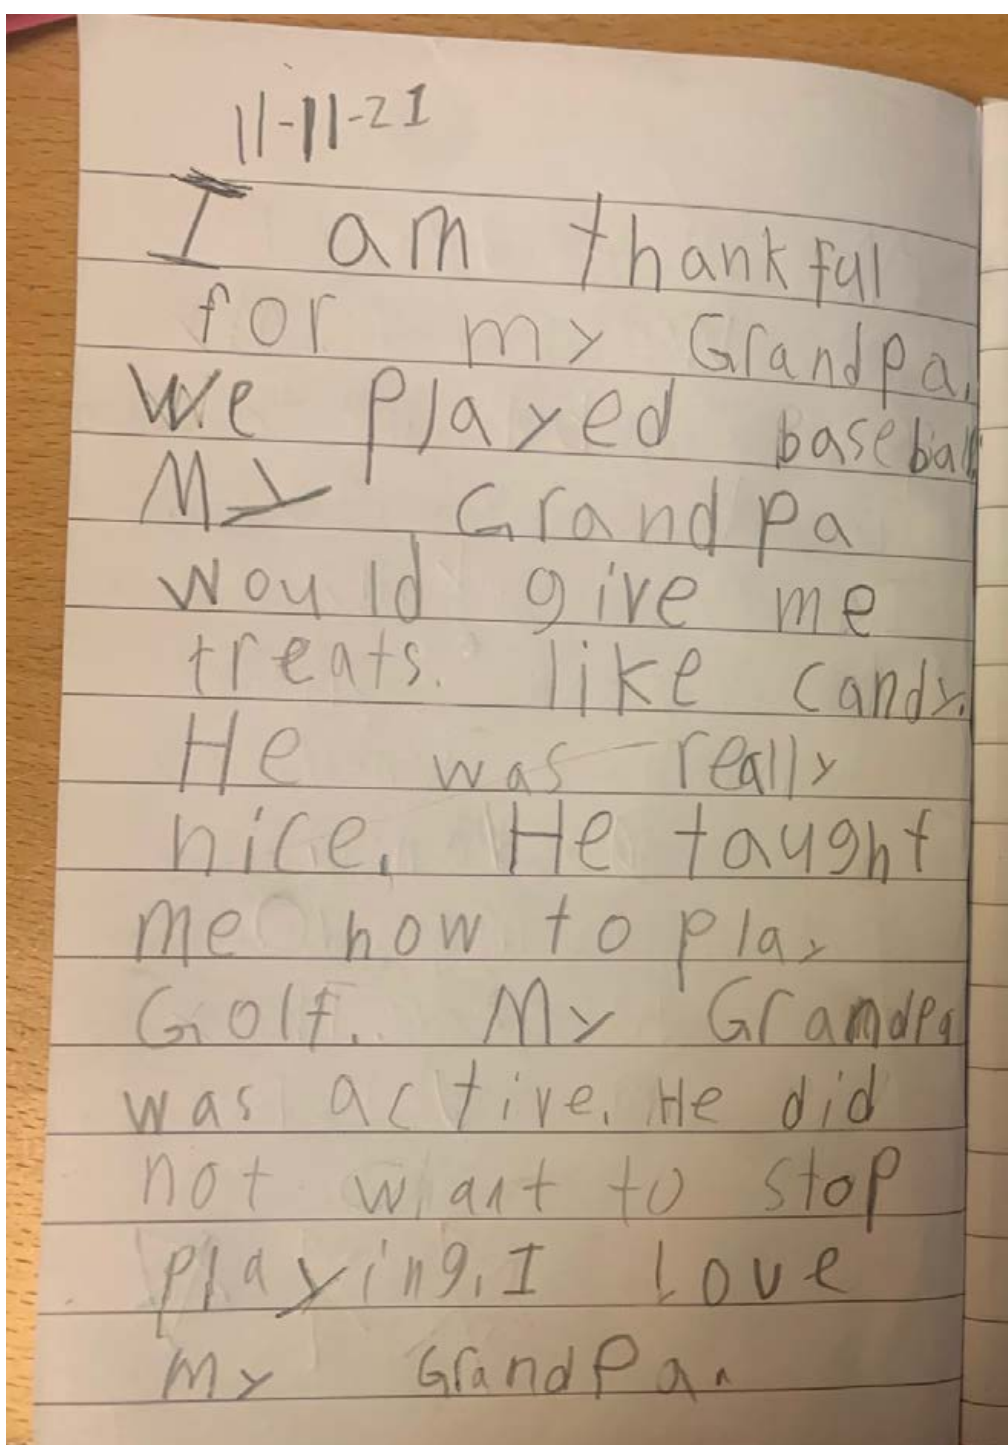 11-11-21
I am thankful
for my Grandpa.
We played baseball
My Grandpa
would give me
treats. like candy.
He was really
nice. He taught
me how to play
Golf. My Gramdpa
was active. He did
not want to stop
playing. I love
my GrandPa.